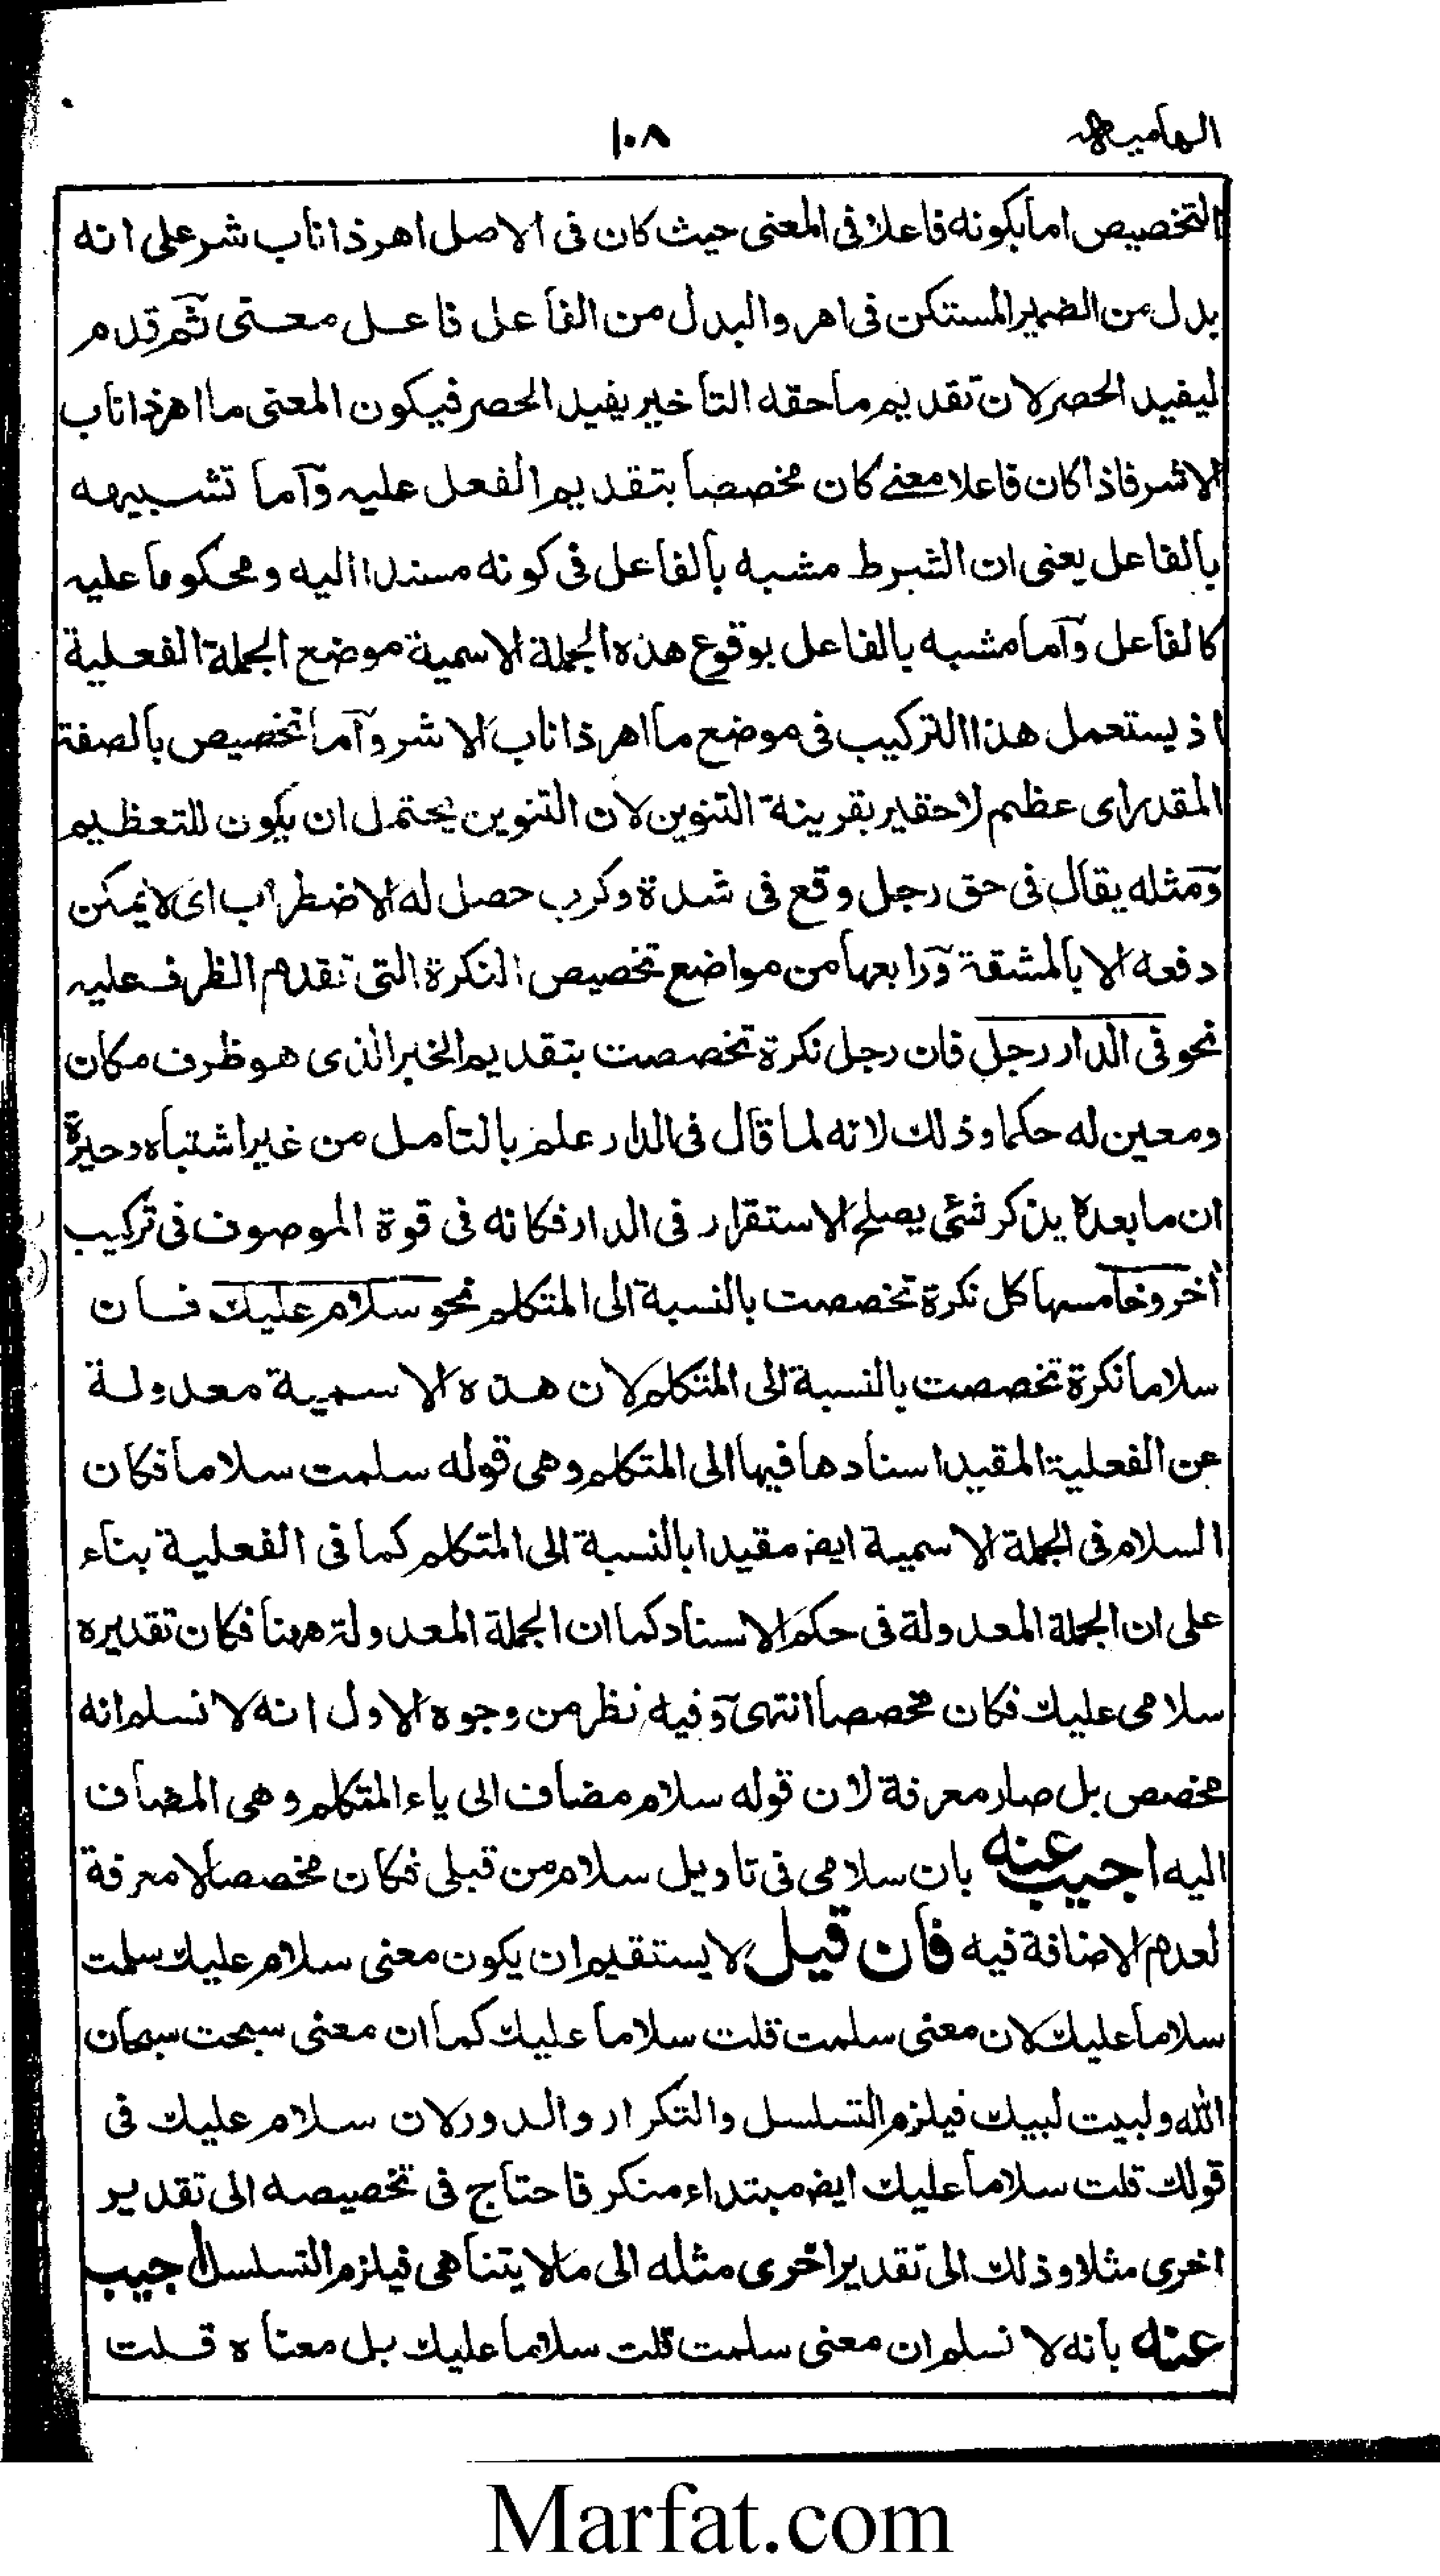 الهامية ١٠٨
التخصيص اما بكونه فاعلا فى المعنى حيث كان فى الاصل اهر ذا ناب شر على انه
بدل من الضمير المستكن فى اهر والبدل من الفاعل فاعل معنى ثم قدم
ليفيد الحصر لان تقديم ما حقه التاخير يفيد الحصر فيكون المعنى ما اهر ذا ناب
الا شر فاذا كان فاعلا معنے كان مخصصا بتقديم الفعل عليه وآما تشبيهه
بالفاعل يعنى ان الشرط مشبه بالفاعل فى كونه مسندا اليه ومحكوما عليه
كالفاعل وآما مشبه بالفاعل بوقوع هذه الجملة الاسمية موضع الجملة الفعلية
اذ يستعمل هذا التركيب فى موضع ما اهر ذا ناب الا شر وآما تخصيص بالصفة
المقدر اى عظيم لا حقير بقرينة التنوين لان التنوين يحتمل ان يكون للتعظيم
ومثله يقال فى حق رجل وقع فى شدة وكرب حصل له الاضطراب اى لا يمكن
دفعه الا بالمشقة ورابعها من مواضع تخصيص النكرة التى تقدم الظرف عليه
نحو فى الدار رجل فان رجل نكرة تخصصت بتقديم الخبر الذى هو ظرف مكان
ومعين له حكما وذلك لانه لما قال فى الدار علم بالتامل من غير اشتباه وحيرة
ان ما بعده يذكر شئى يصلح الاستقرار فى الدار فكانه فى قوة الموصوف فى تركيب
أخر وخامسها كل نكرة تخصصت بالنسبة الى المتكلم نحو سلام عليك فان
سلاما نكرة تخصصت بالنسبة الى المتكلم لان هذه الاسمية معدولة
عن الفعلية المقيد اسنادها فيها الى المتكلم وهى قوله سلمت سلاما فكان
السلام فى الجملة الاسمية ايض مقيدا بالنسبة الى المتكلم كما فى الفعلية بناء
على ان الجملة المعدولة فى حكم الاسناد كما ان الجملة المعدولة ههنا فكان تقديره
سلامى عليك فكان مخصصا انتهى وفيه نظر من وجوه الاول انه لا نسلم انه
مخصص بل صار معرفة لان قوله سلام مضاف الى ياء المتكلم وهى المضاف
اليه اجيب عنه بان سلامى فى تاويل سلام من قبلى فكان مخصصا لا معرفة
لعدم الاضافة فيه فان قيل لا يستقيم ان يكون معنى سلام عليك سلمت
سلاما عليك لان معنى سلمت قلت سلاما عليك كما ان معنى سبحت سبحان
الله ولبيت لبيك فيلزم التسلسل والتكرار والدور لان سلام عليك فى
قولك قلت سلاما عليك ايض مبتداء منكر فاحتاج فى تخصيصه الى تقدير
اخرى مثلا وذلك الى تقدير اخرى مثله الى مالا يتناهى فيلزم التسلسل اجيب
عنه بانه لا نسلم ان معنى سلمت قلت سلاما عليك بل معناه قلت
Marfat.com